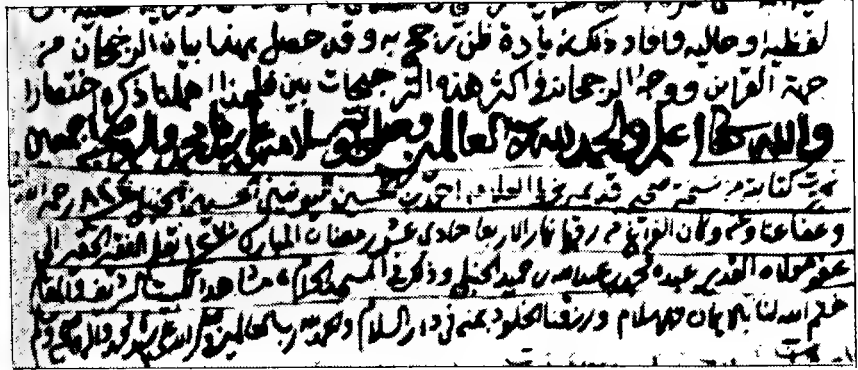 لفظية او حالية وافاد ذلك زيادة ظن رجح به وقد حصل بهذا بيان الرجحان من
جهة القرائن ووجه الرجحان واكثر هذه الترجيحات بين فلهذا اهملنا ذكره اختصارا
والله تعالى اعلم والحمد لله رب العالمين وصلى الله وسلامه على محمد واله وصحبه اجمعين
تمت كتابة من نسخة صحيحة قديمة بخط احمد بن الحنبلي رحمه الله
وعفا عنا وعنه وكان الفراغ من رقمها نهار الاربعا حادى عشر رمضان المبارك بقلم الفقير الحقير الى
عفو مولاه القدير عبده محمد بن عبد الله بن حميد الحنبلي وذلك في المسجد الحرام مشاهد البيت الشريف والمقام
ختم الله لنا بالايمان والاسلام ورزقنا الخلود بمنه في دار السلام والحمد لله رب العالمين
تمت